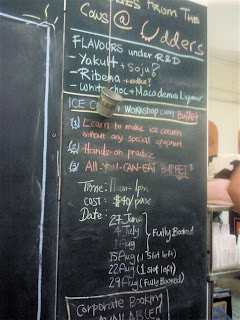 FROM THE
COWS @ Udders
FLAVOURS under R&D
- Yakult + Soju?
- Ribena + vodka?
- White choc + Macadamia Liqueur
ICE Workshop cum Buffet
(1) Learn to make ice cream
without any special equipment
(2) Hands-on practice
(3) ALL-YOU-CAN-EAT BUFFET
Time: 11am-1pm
Cost: $40/pax
Date: 27 June
4 July
1 Aug
Fully Booked
15 Aug (1 slot left)
22 Aug (1 slot left)
29 Aug (Fully Booked)
Corporate Booking
AVAILABLE